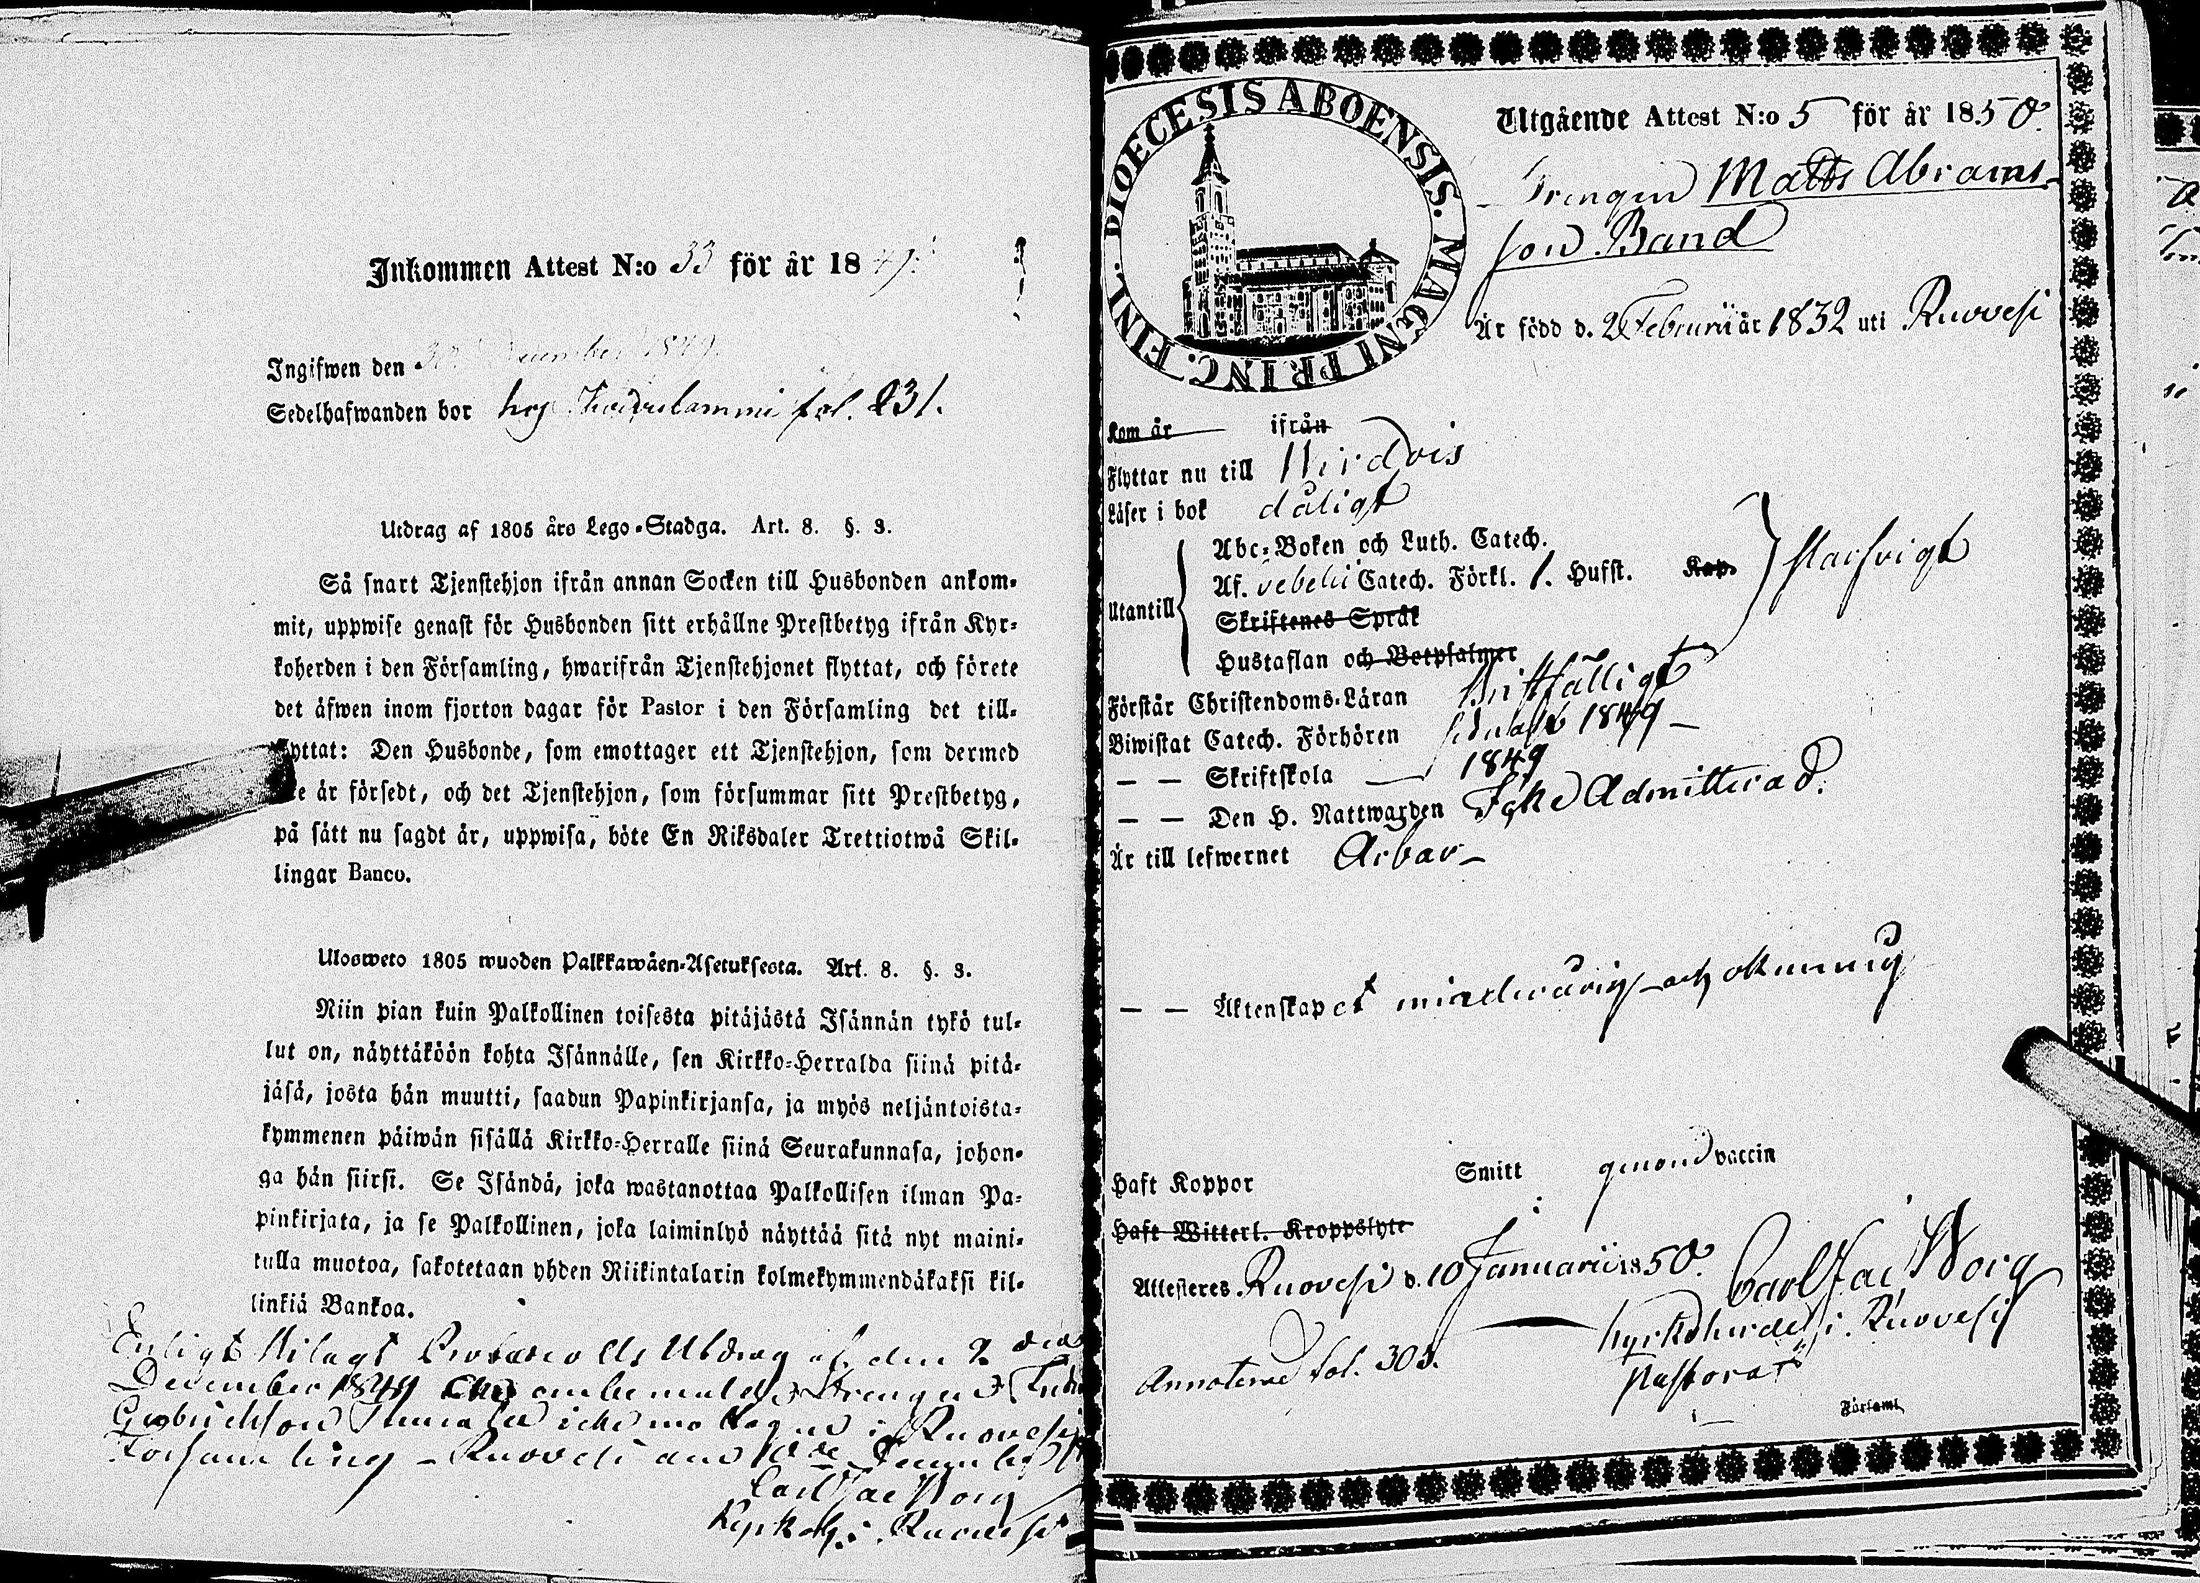 Inkommen Attest N:o 33 för år 1849.
Ingifwen den
Sedelhafwanden bor fol. 231.
Utdrag af 1805 års Lego-Stadga. Art. 8. §. 3.
Så snart Tjenstehjon ifrån annan Socken till Husbonden ankom-
mit, uppwise genast för Husbonden sitt erhållne Prestbetyg ifrån Kyr-
koherden i den Församling, hwarifrån Tjenstehjonet flyttat, och förete
det äfwen inom fjorton dagar för Pastor i den Församling det till-
flyttat: Den Husbonde, som emottager ett Tjenstehjon, som dermed
är försedt, och det Tjenstehjon, som försummar sitt Prestbetyg,
på sätt nu sagdt är, uppwisa, böte En Riksdaler Trettiotwå Skil-
lingar Banco.
Ulosweto 1805 wuoden Palkkawäen-Asetuksesta. Art. 8. §. 3.
Niin pian kuin Palkollinen toisesta pitäjästä Isännän tykö tul-
lut on, näyttäköön kohta Isännälle, sen Kirkko-Herralda siinä pitä-
jäsä, josta hän muutti, saadun Papinkirjansa, ja myös neljäntoista-
kymmenen päiwän sisällä Kirkko-Herralle siinä Seurakunnasa, johon-
ga hän siirsi. Se Isändä, joka wastanottaa Palkollisen ilman Pa-
pinkirjata, ja se Palkollinen, joka laiminlyö näyttää sitä nyt maini-
tulla muotoa, sakotetaan yhden Riikintalarin kolmekymmendäkaksi kil-
linkiä Bankoa.
Enligt bilagt Protocolls Utdrag af den 2 dra
December 1849
i Ruovesi
Församling – Ruovesi
Carl Jac Borg
Kyrkoh: i Ruovesi
DIOECESIS ABOENSIS. MAGNI PRINC. FINL.
Utgående Attest N:o 5 för år 1850.
Drengen Matts Abrams-
son Band
Är född d. 2 Februarii år 1832 uti Ruovesi
Kom år ifrån
Flyttar nu till Wirdois
Läser i bok dåligt
Utantill
Abc-Boken och Luth. Catech.
Af. Catech. Förkl. 1. Hufst. Kap.
Skriftenes Språk
Hustaflan och Botpsalmer
svagt
Förstår Christendoms-Läran
Biwistat Catech. Förhören sednast 1849 –
— — Skriftskola — 1849
— — Den H. Nattwarden Icke Admitterad.
Är till lefwernet Ärbar –
— — Äktenskapet minderårig och okunnig
Haft Koppor Smitt genom vaccin
Haft Witterl. Kroppslyte
Attesteres Ruovesi d. 10 Januarii 1850. Carl Jac Borg
Kyrkoherde i Ruovesi
Pastorat
Annoterad fol. 305.
Församl.